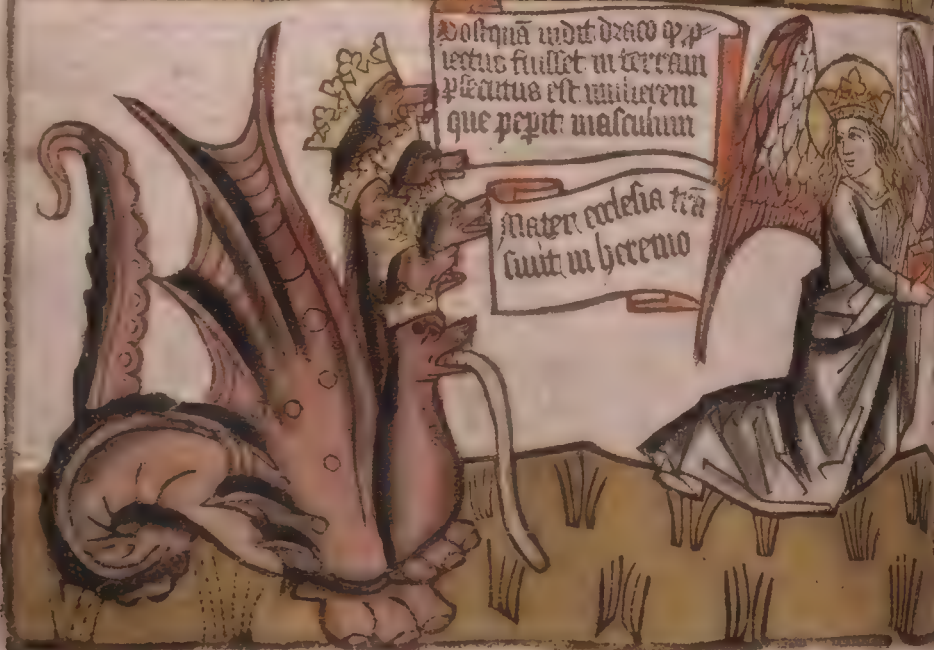 Postquā uidit draco ꝙ ꝓ-
iectus fuisset in terram
ꝑsecutus est mulierem
que peꝑit masculum
Mater ecclesia trā
siuit in heremo